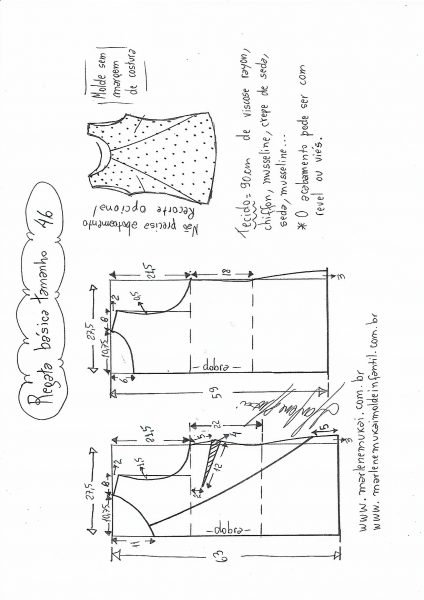 Regata básica tamanho 46
Molde sem
margem
de costura
Não precisa abotoamento
Recorte opcional
Tecido = 90cm de viscose rayon,
chiffon, musseline, crepe de seda,
seda, musseline...
* O acabamento pode ser com
revel ou viés.
27,5
10,75
8
2
21,5
18
0,5
6
-dobra-
59
3
27,5
10,75
8
2
21,5
22
1,5
11
5
4
12
2
15
3
-dobra-
63
www.marlenemukai.com.br
www.marlenemukaimoldeinfantil.com.br